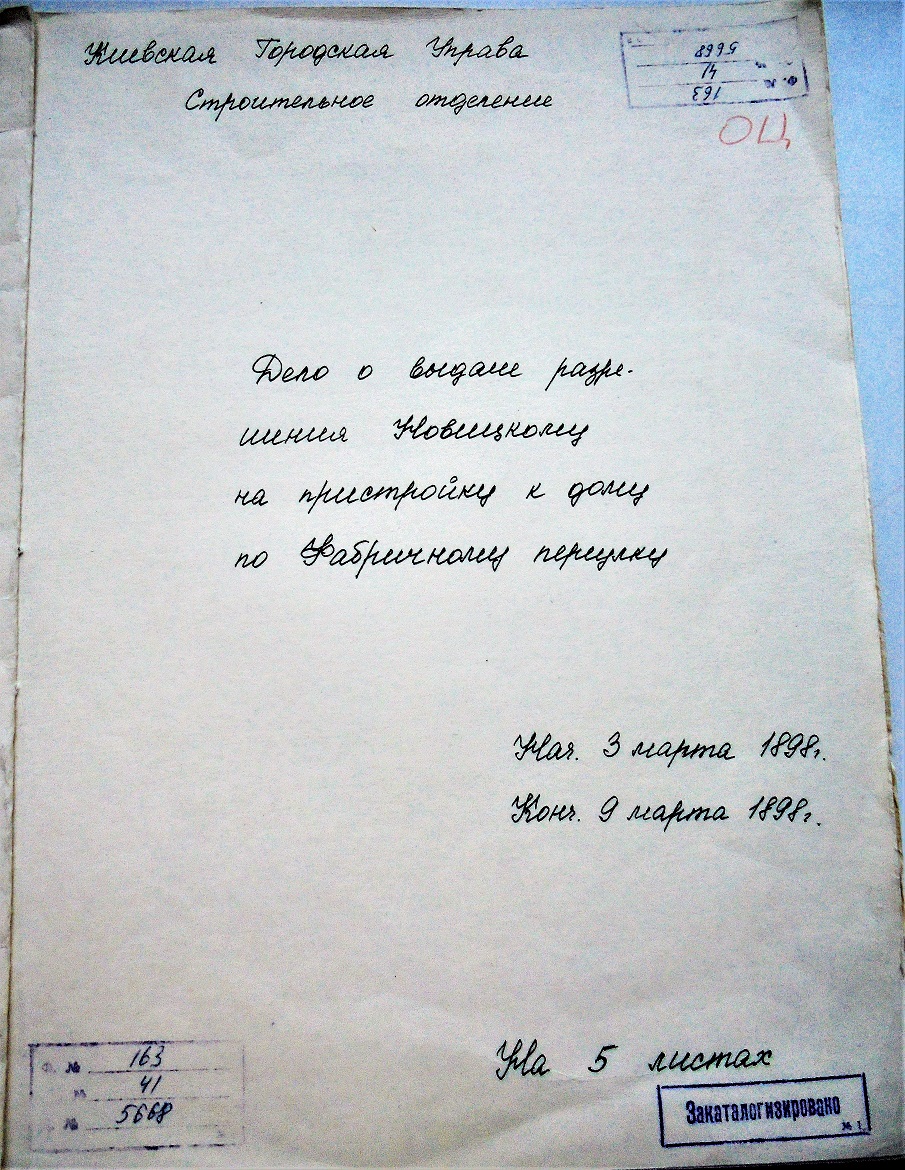 Киевская Городская Управа
Строительное отделение
5668
41
163
ОЦ
Дело о выдаче разре-
шения Новицкому
на пристройку к дому
по Фабричному переулку
Нач. 3 марта 1898г.
Конч. 9 марта 1898г.
На 5 листах
Ф. № 163
№ 41
№ 5668
Закаталогизировано
№ 1